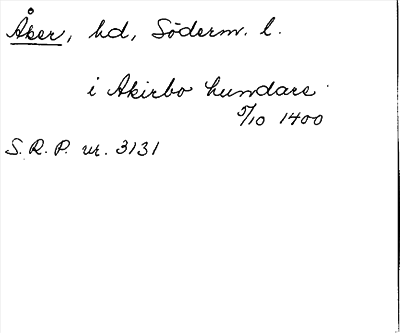 Åker, hd, Söderm. l.
i Akirbo hundare
5/10 1400
S.R.P. nr. 3131